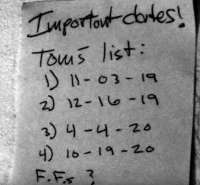 Important dates!
Tom's list:
1) 11-03-19
2) 12-16-19
3) 4-4-20
4) 10-19-20
F.F.s ?